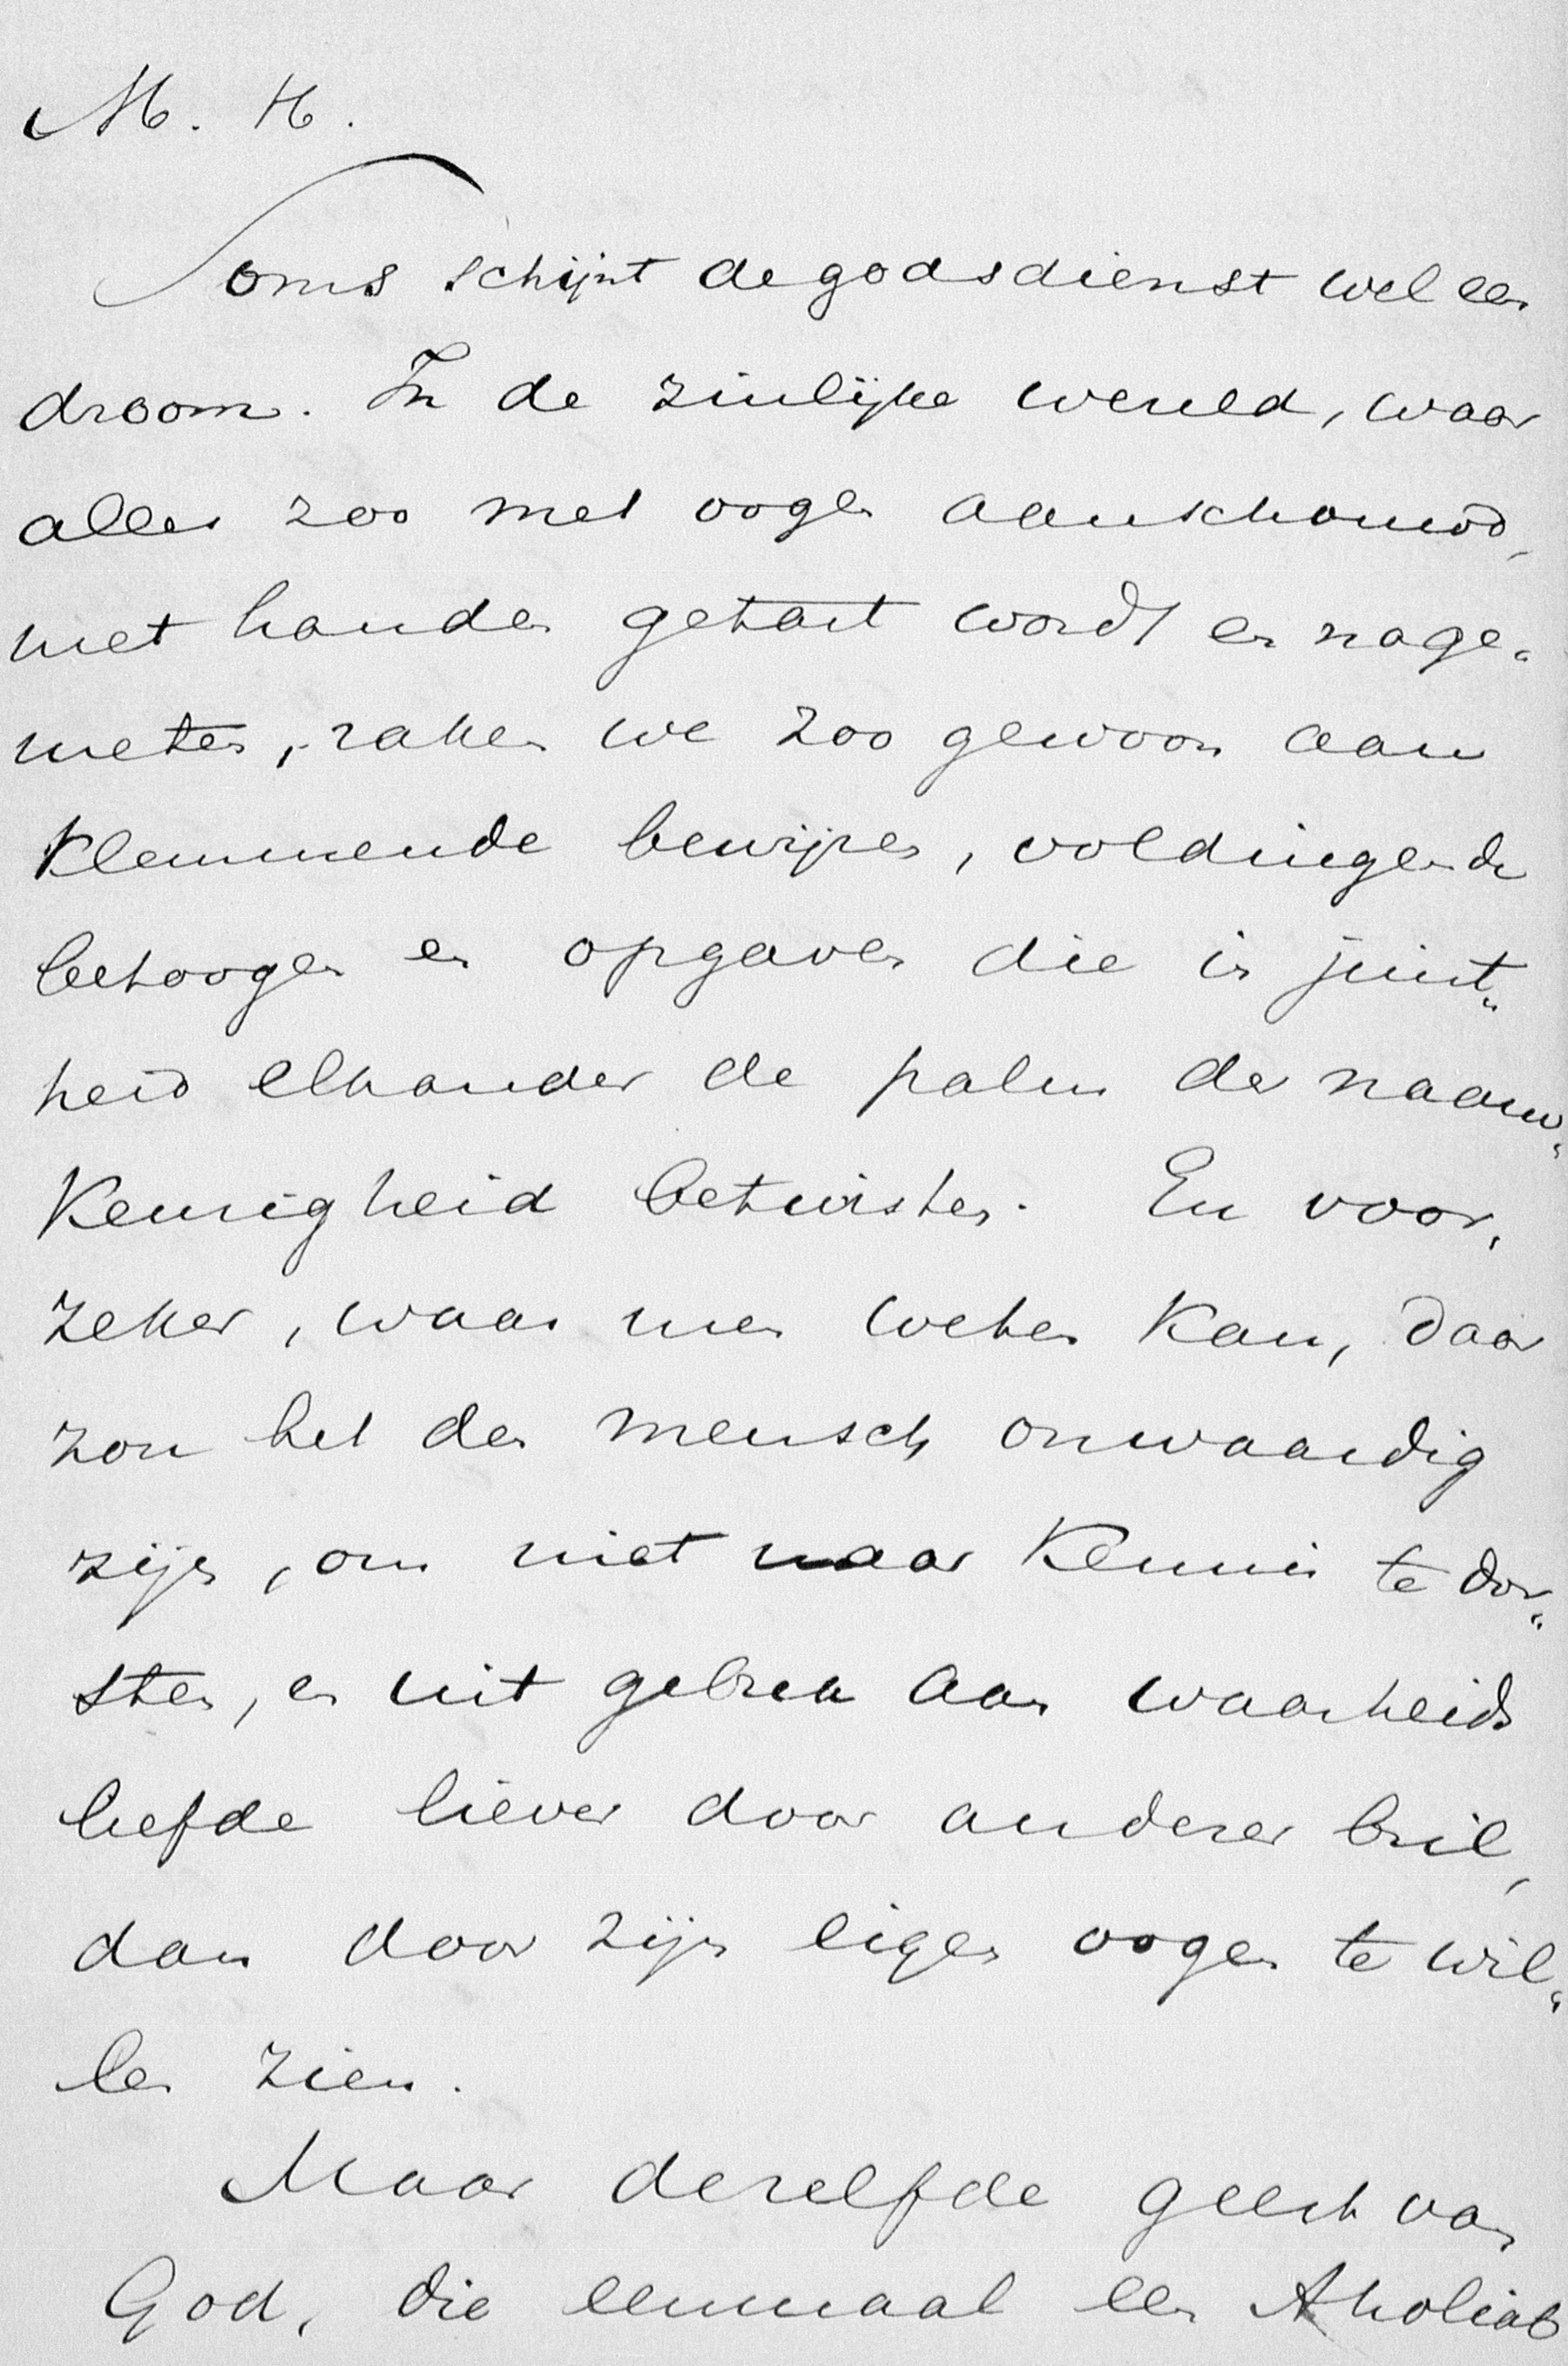 M. H.
Soms schijnt de godsdienst wel een
droom. In de zinlijke wereld, waar
alles zoo met oogen aanschouwd,
met handen getast wordt en nage-
meten, raken we zoo gewoon aan
klemmende bewijzen, voldingende
betoogen en opgaven die in juist-
heid elkander de palm der naauw-
keurigheid betwisten. En voor-
zeker, waar men weten kan, daar
zou het den mensch onwaardig
zijn, om niet naar kennis te dor-
sten, en uit gebrek aan waarheids
liefde liever door anderer bril,
dan door zijn eigen oogen te wil-
len zien.
Maar dezelfde geest van
God, die eenmaal een Aholiab